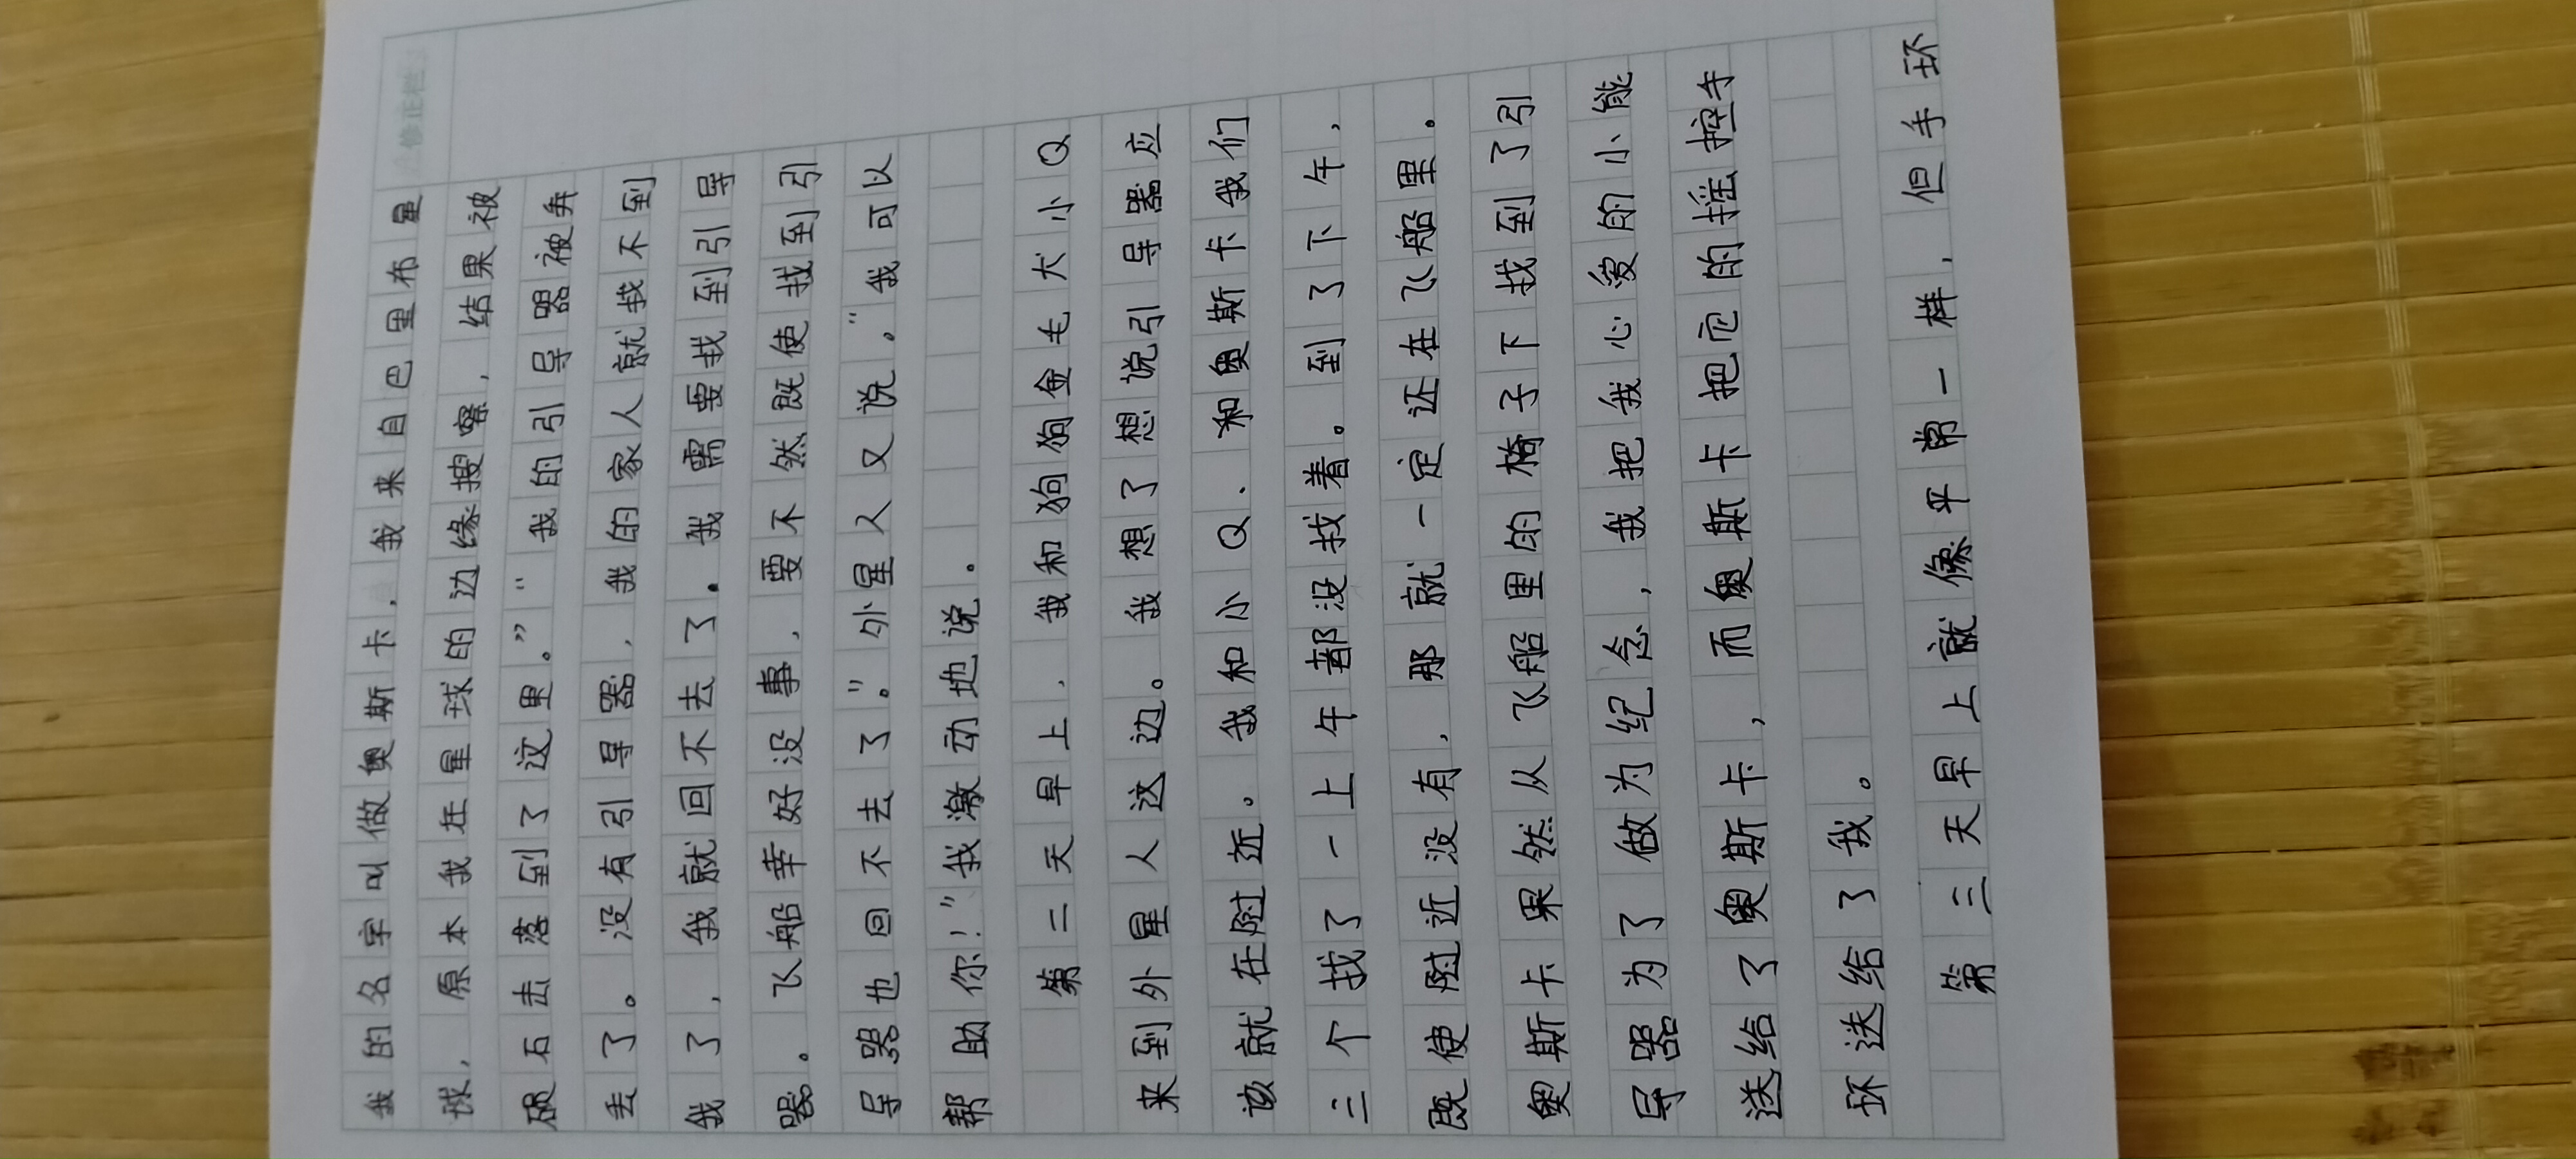 修正栏
我的名字叫做奥斯卡，我来自巴里布星
球，原本我在星球的边缘搜察，结果被
破石击落到了这里。”“我的引导器被弄
丢了。没有引导器，我的家人就找不到
我了，我就回不去了。我需要找到引导
器。飞船幸好没事，要不然既使找到引
导器也回不去了。”外星人又说。“我可以
帮助你！”我激动地说。
第二天早上，我和狗狗金毛犬小Q
来到外星人这边。我想了想说引导器应
该就在附近。我和小Q、和奥斯卡我们
三个找了一上午都没找着。到了下午，
既使附近没有，那就一定还在飞船里。
奥斯卡果然从飞船里的椅子下找到了引
导器为了做为纪念，我把我心爱的小熊
送给了奥斯卡，而奥斯卡把它的摇控手
环送给了我。
第三天早上就像平常一样，但手环